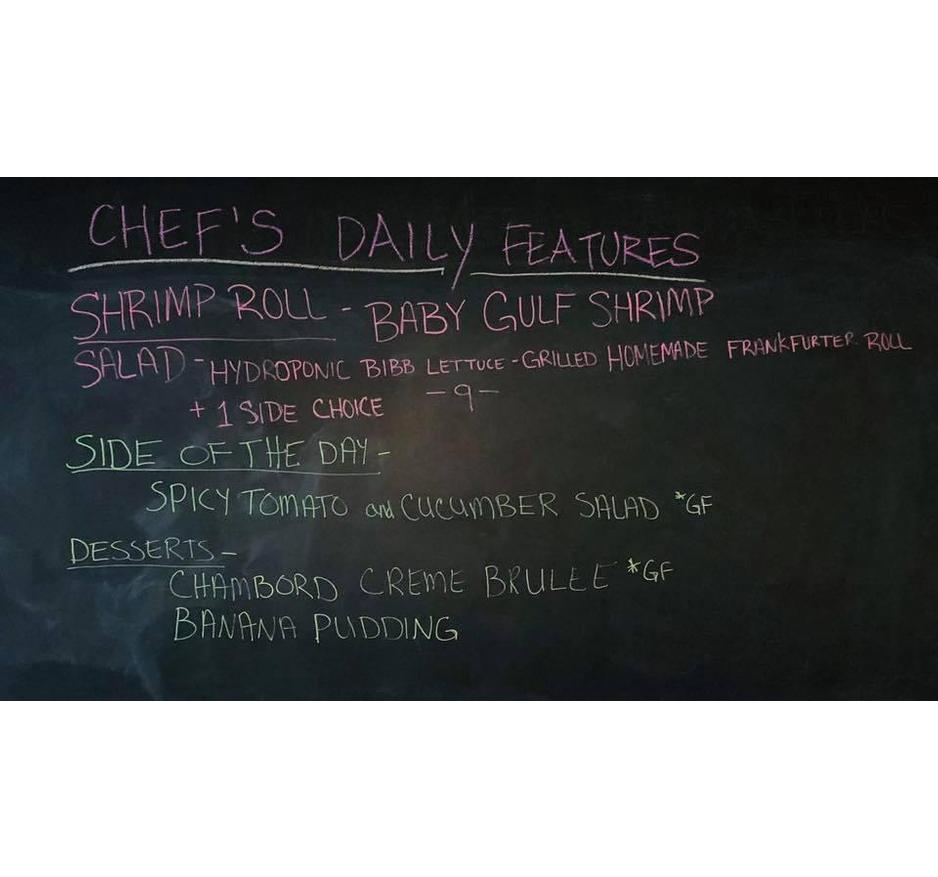 CHEF'S DAILY FEATURES
SHRIMP ROLL - BABY GULF SHRIMP
SALAD - HYDROPONIC BIBB LETTUCE - GRILLED HOMEMADE FRANKFURTER ROLL
+ 1 SIDE CHOICE -9-
SIDE OF THE DAY -
SPICY TOMATO and CUCUMBER SALAD *GF
DESSERTS -
CHAMBORD CREME BRULEE *GF
BANANA PUDDING